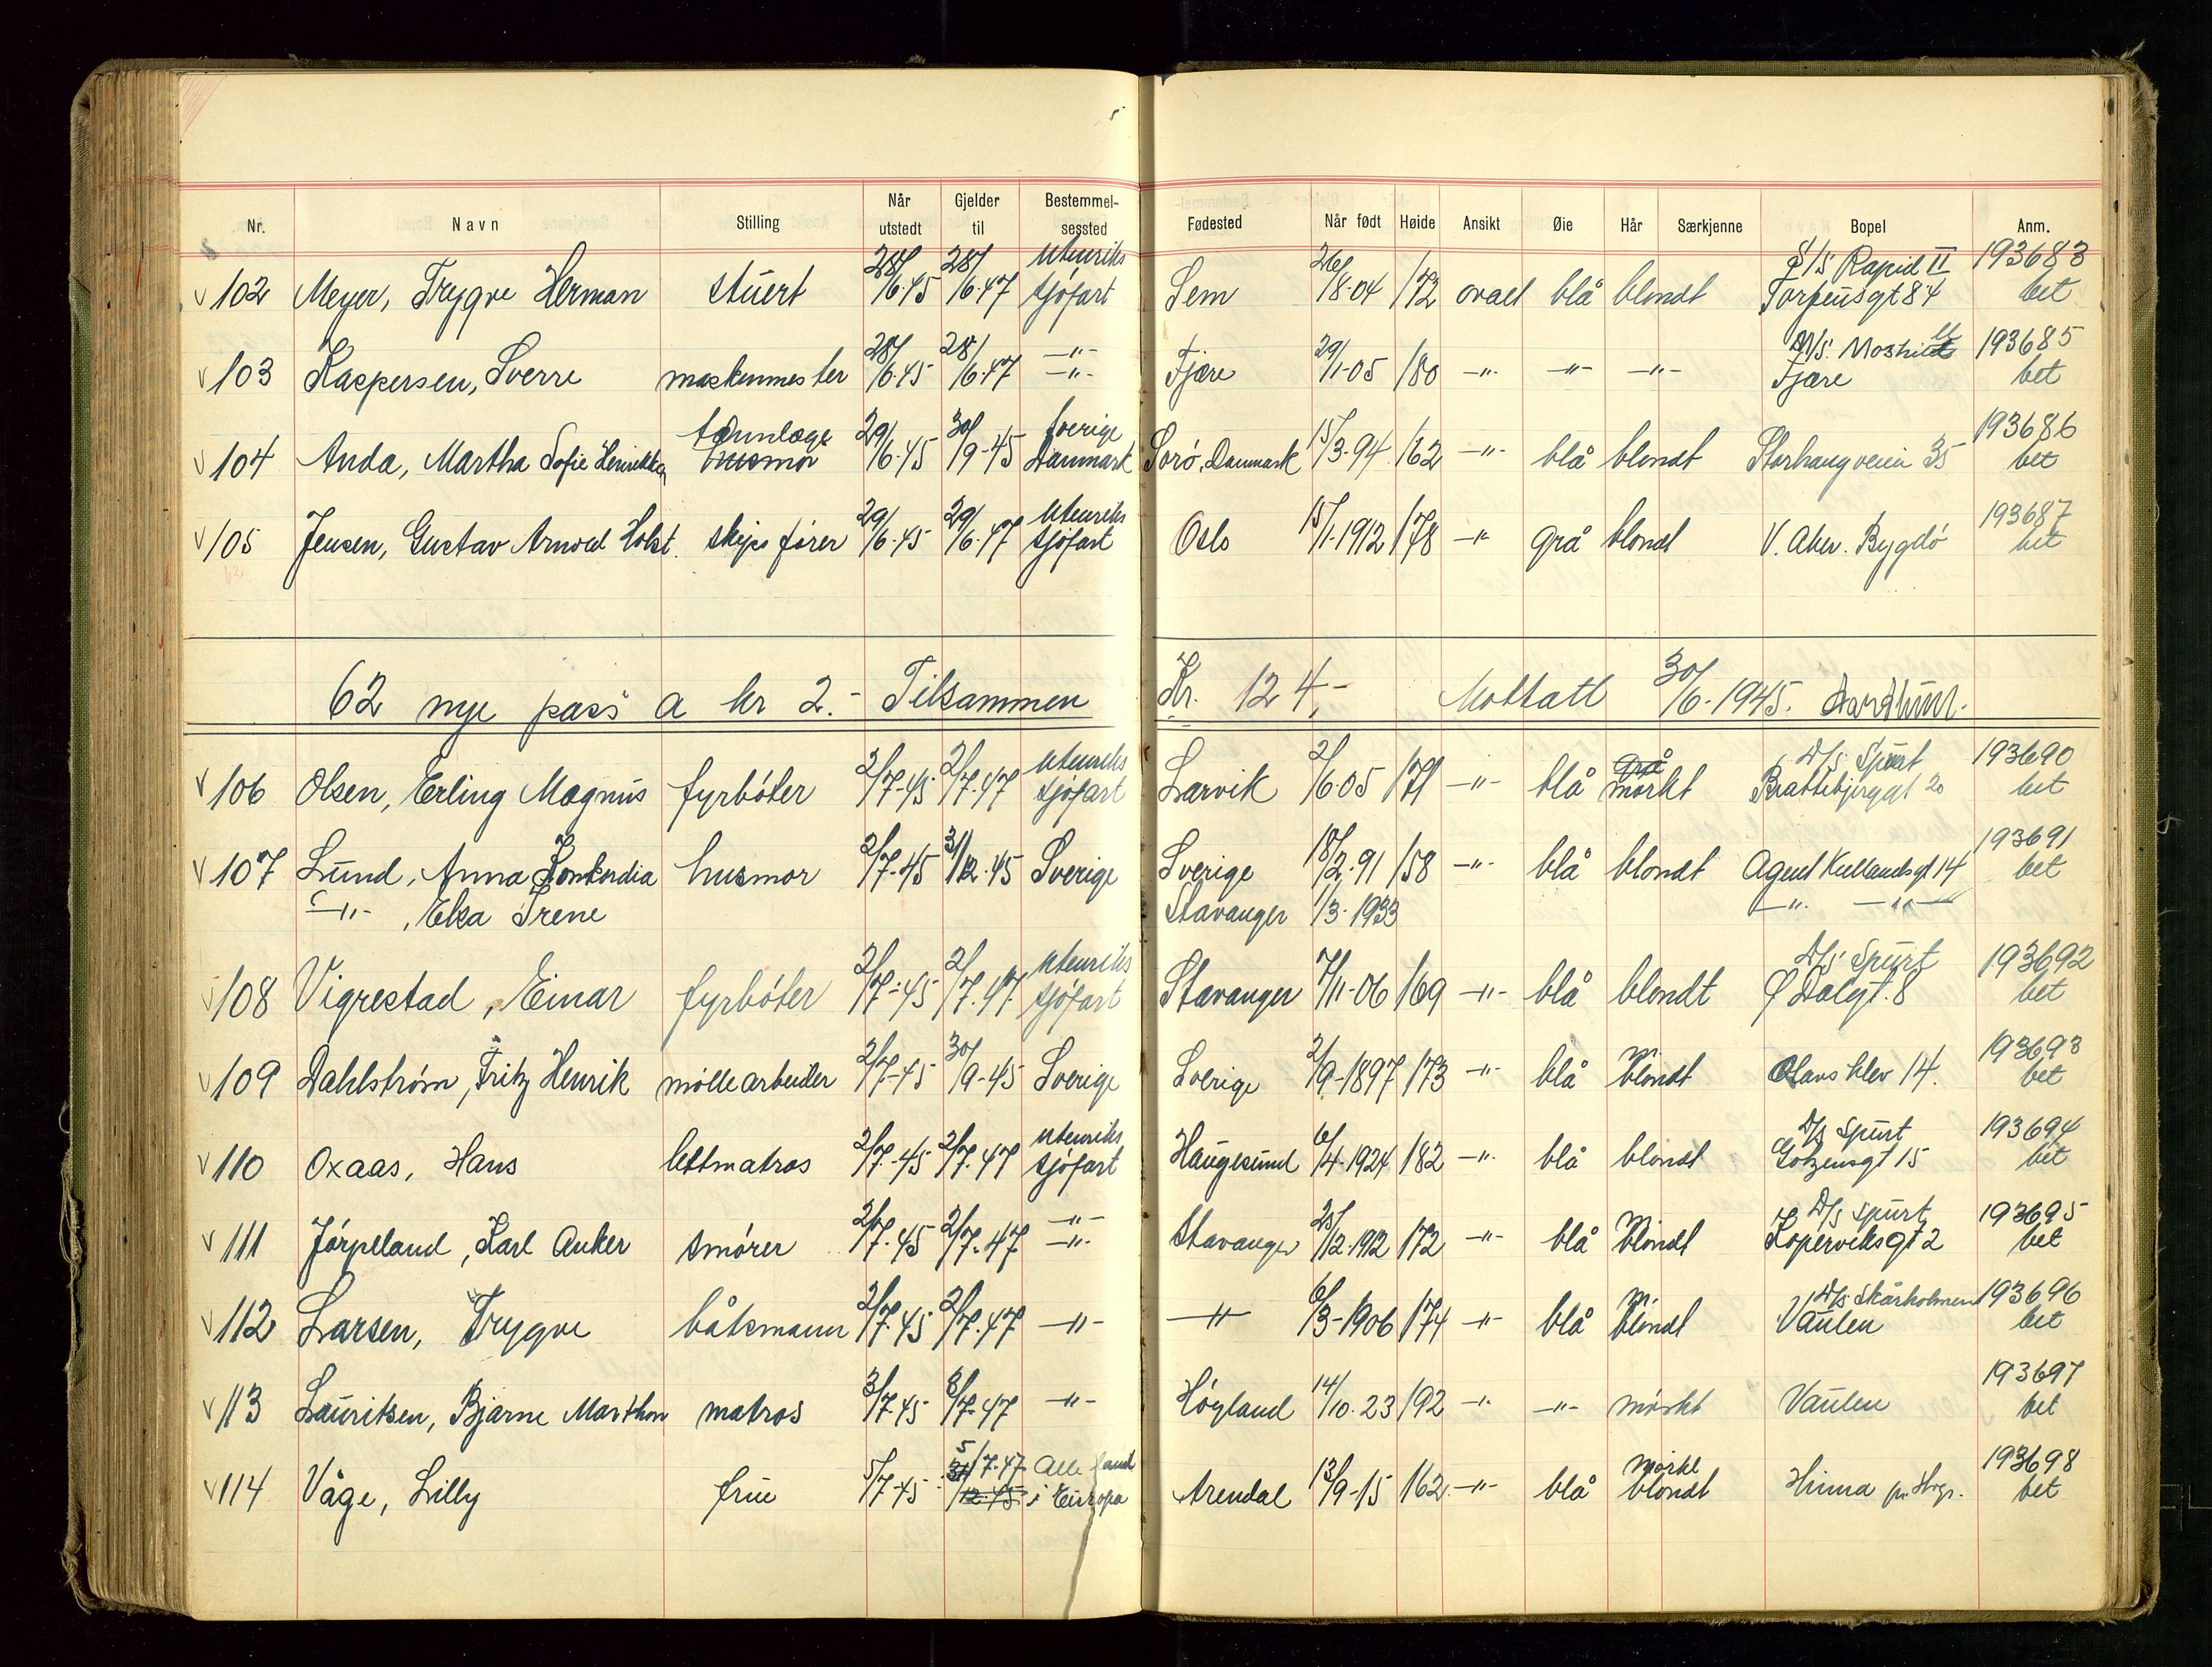 Nr. Navn Stilling Når utstedt Gjelder til Bestemmel-sessted Fødested Når født Høide Ansikt Øie Hår Særkjenne Bopel Anm.
utenriks S/S Rapid II 193683
102 Meyer, Trygve Herman stuert 28/6.45 28/6.47 sjøfart Sem 26/8-04 172 ovalt blå blondt Torpeusgt 84 bet
-"- M/S. Moshill 193685
103 Kaspersen, Sverre maskinmester 28/6.45 28/6.47 -"- Fjære 29/1-05 180 -"- -"- -"- Fjære bet
tannlæge Sverige 193686
104 Anda, Martha Sofie Henrikka husmor 29/6.45 30/9-45 Danmark Sorø, Danmark 15/3-94 162 -"- blå blondt Storhaugveien 35 bet
utenriks 193687
105 Jensen, Gustav Arnold Holst. skipsfører 29/6.45 29/6.47 sjøfart Oslo 15/1-1912 178 -"- grå blondt V. Aker. Bygdö bet
62 nye pass a kr 2.- Tilsammen Kr. 124,- Mottatt 30/6-1945.
utenriks grå D/S. Spurt 193690
106 Olsen, Erling Magnus fyrbøter 2/7-45 2/7.47 sjøfart Larvik 2/6-05 171 -"- blå mørkt Brattebjerggt 20 bet
193691
107 Lund, Anna Konkordia husmor 2/7-45 31/12.45 Sverige Sverige 18/2.91 158 -"- blå blondt Agent Kiellandsgt 14 bet
-"- , Elsa Irene Stavanger 1/3-1933 -"- -"-
utenriks D/S. Spurt 193692
108 Vigrestad, Einar fyrbøter 2/7-45 2/7.47 sjøfart Stavanger 7/11-06 169 -"- blå blondt Ø Dalgt. 8 bet
m 193693
109 Dahlstrøm, Fritz Henrik møllearbeider 2/7-45 30/9-45 Sverige Sverige 2/9-1897 173 -"- blå blondt Olavs klev 14. bet
utenriks D/S Spurt 193694
110 Oxaas, Hans lettmatros 2/7-45 2/7.47 sjøfart Haugesund 6/4-1924 182 -"- blå blondt Gotzensgt 15 bet
-"- m D/S Spurt 193695
111 Jørpeland, Karl Anker smører 2/7.45 2/7.47 -"- Stavanger 25/12.1912 172 -"- blå blondt Koperviksgt 2 bet
m. D/S. Skårholmen 193696
112 Larsen, Trygve båtsmann 2/7.45 2/7.47 -"- -"- 6/3-1906 174 -"- blå blondt Vaulen bet
193697
113 Lauritsen, Bjarne Marthon matros 3/7.45 3/7.47 -"- Høyland 14/10.23 192 -"- -"- mørkt Vaulen bet
5/7.47 Alle land mørkt 193698
114 Våge, Lilly frue 5/7-45 31/12.45 i Europa Arendal 13/9-15 162 -"- blå blondt Hinna pr. Stvgr. bet